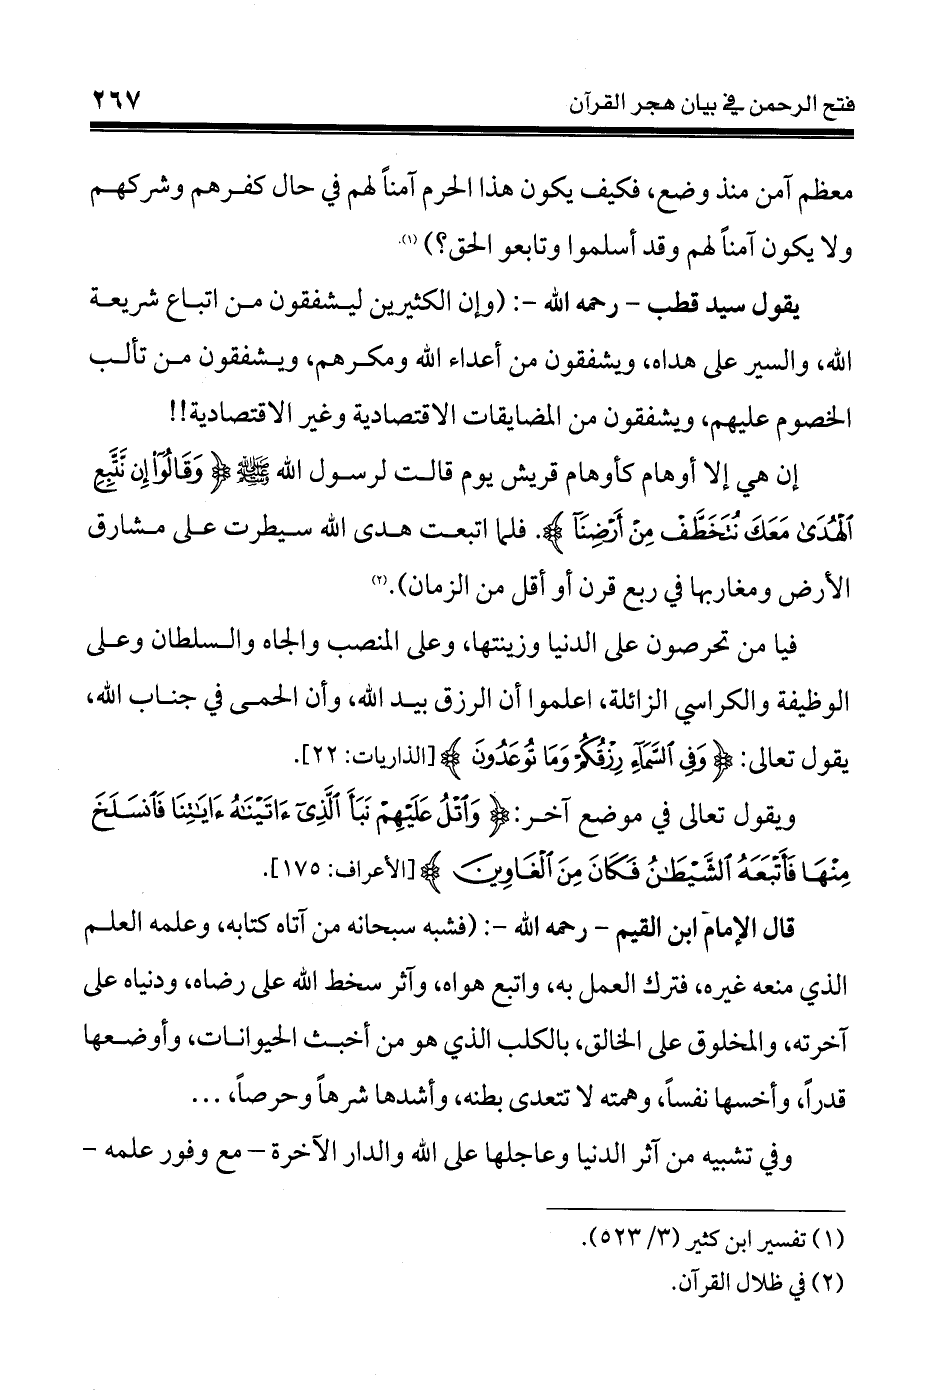 فتح الرحمن في بيان هجر القرآن ٢٦٧
معظم آمن منذ وضع، فكيف يكون هذا الحرم آمناً لهم في حال كفرهم وشركهم
ولا يكون آمناً لهم وقد أسلموا وتابعو الحق؟) (١).
يقول سيد قطب - رحمه الله -: (وإن الكثيرين ليشفقون من اتباع شريعة
الله، والسير على هداه، ويشفقون من أعداء الله ومكرهم، ويشفقون من تألب
الخصوم عليهم، ويشفقون من المضايقات الاقتصادية وغير الاقتصادية!!
إن هي إلا أوهام كأوهام قريش يوم قالت لرسول الله ﷺ ﴿ وَقَالُوٓاْ إِن نَّتَّبِعِ
ٱلْهُدَىٰ مَعَكَ نُتَخَطَّفْ مِنْ أَرْضِنَآ ﴾. فلما اتبعت هدى الله سيطرت على مشارق
الأرض ومغاربها في ربع قرن أو أقل من الزمان).(٢)
فيا من تحرصون على الدنيا وزينتها، وعلى المنصب والجاه والسلطان وعلى
الوظيفة والكراسي الزائلة، اعلموا أن الرزق بيد الله، وأن الحمى في جناب الله،
يقول تعالى: ﴿ وَفِى ٱلسَّمَآءِ رِزْقُكُمْ وَمَا تُوعَدُونَ ﴾ [الذاريات: ٢٢].
ويقول تعالى في موضع آخر: ﴿ وَٱتْلُ عَلَيْهِمْ نَبَأَ ٱلَّذِىٓ ءَاتَيْنَٰهُ ءَايَٰتِنَا فَٱنسَلَخَ
مِنْهَا فَأَتْبَعَهُ ٱلشَّيْطَٰنُ فَكَانَ مِنَ ٱلْغَاوِينَ ﴾ [الأعراف: ١٧٥].
قال الإمام ابن القيم - رحمه الله -: (فشبه سبحانه من آتاه كتابه، وعلمه العلم
الذي منعه غيره، فترك العمل به، واتبع هواه، وآثر سخط الله على رضاه، ودنياه على
آخرته، والمخلوق على الخالق، بالكلب الذي هو من أخبث الحيوانات، وأوضعها
قدراً، وأخسها نفساً، وهمته لا تتعدى بطنه، وأشدها شرهاً وحرصاً، ...
وفي تشبيه من آثر الدنيا وعاجلها على الله والدار الآخرة - مع وفور علمه -
(١) تفسير ابن كثير (٣/ ٥٢٣).
(٢) في ظلال القرآن.